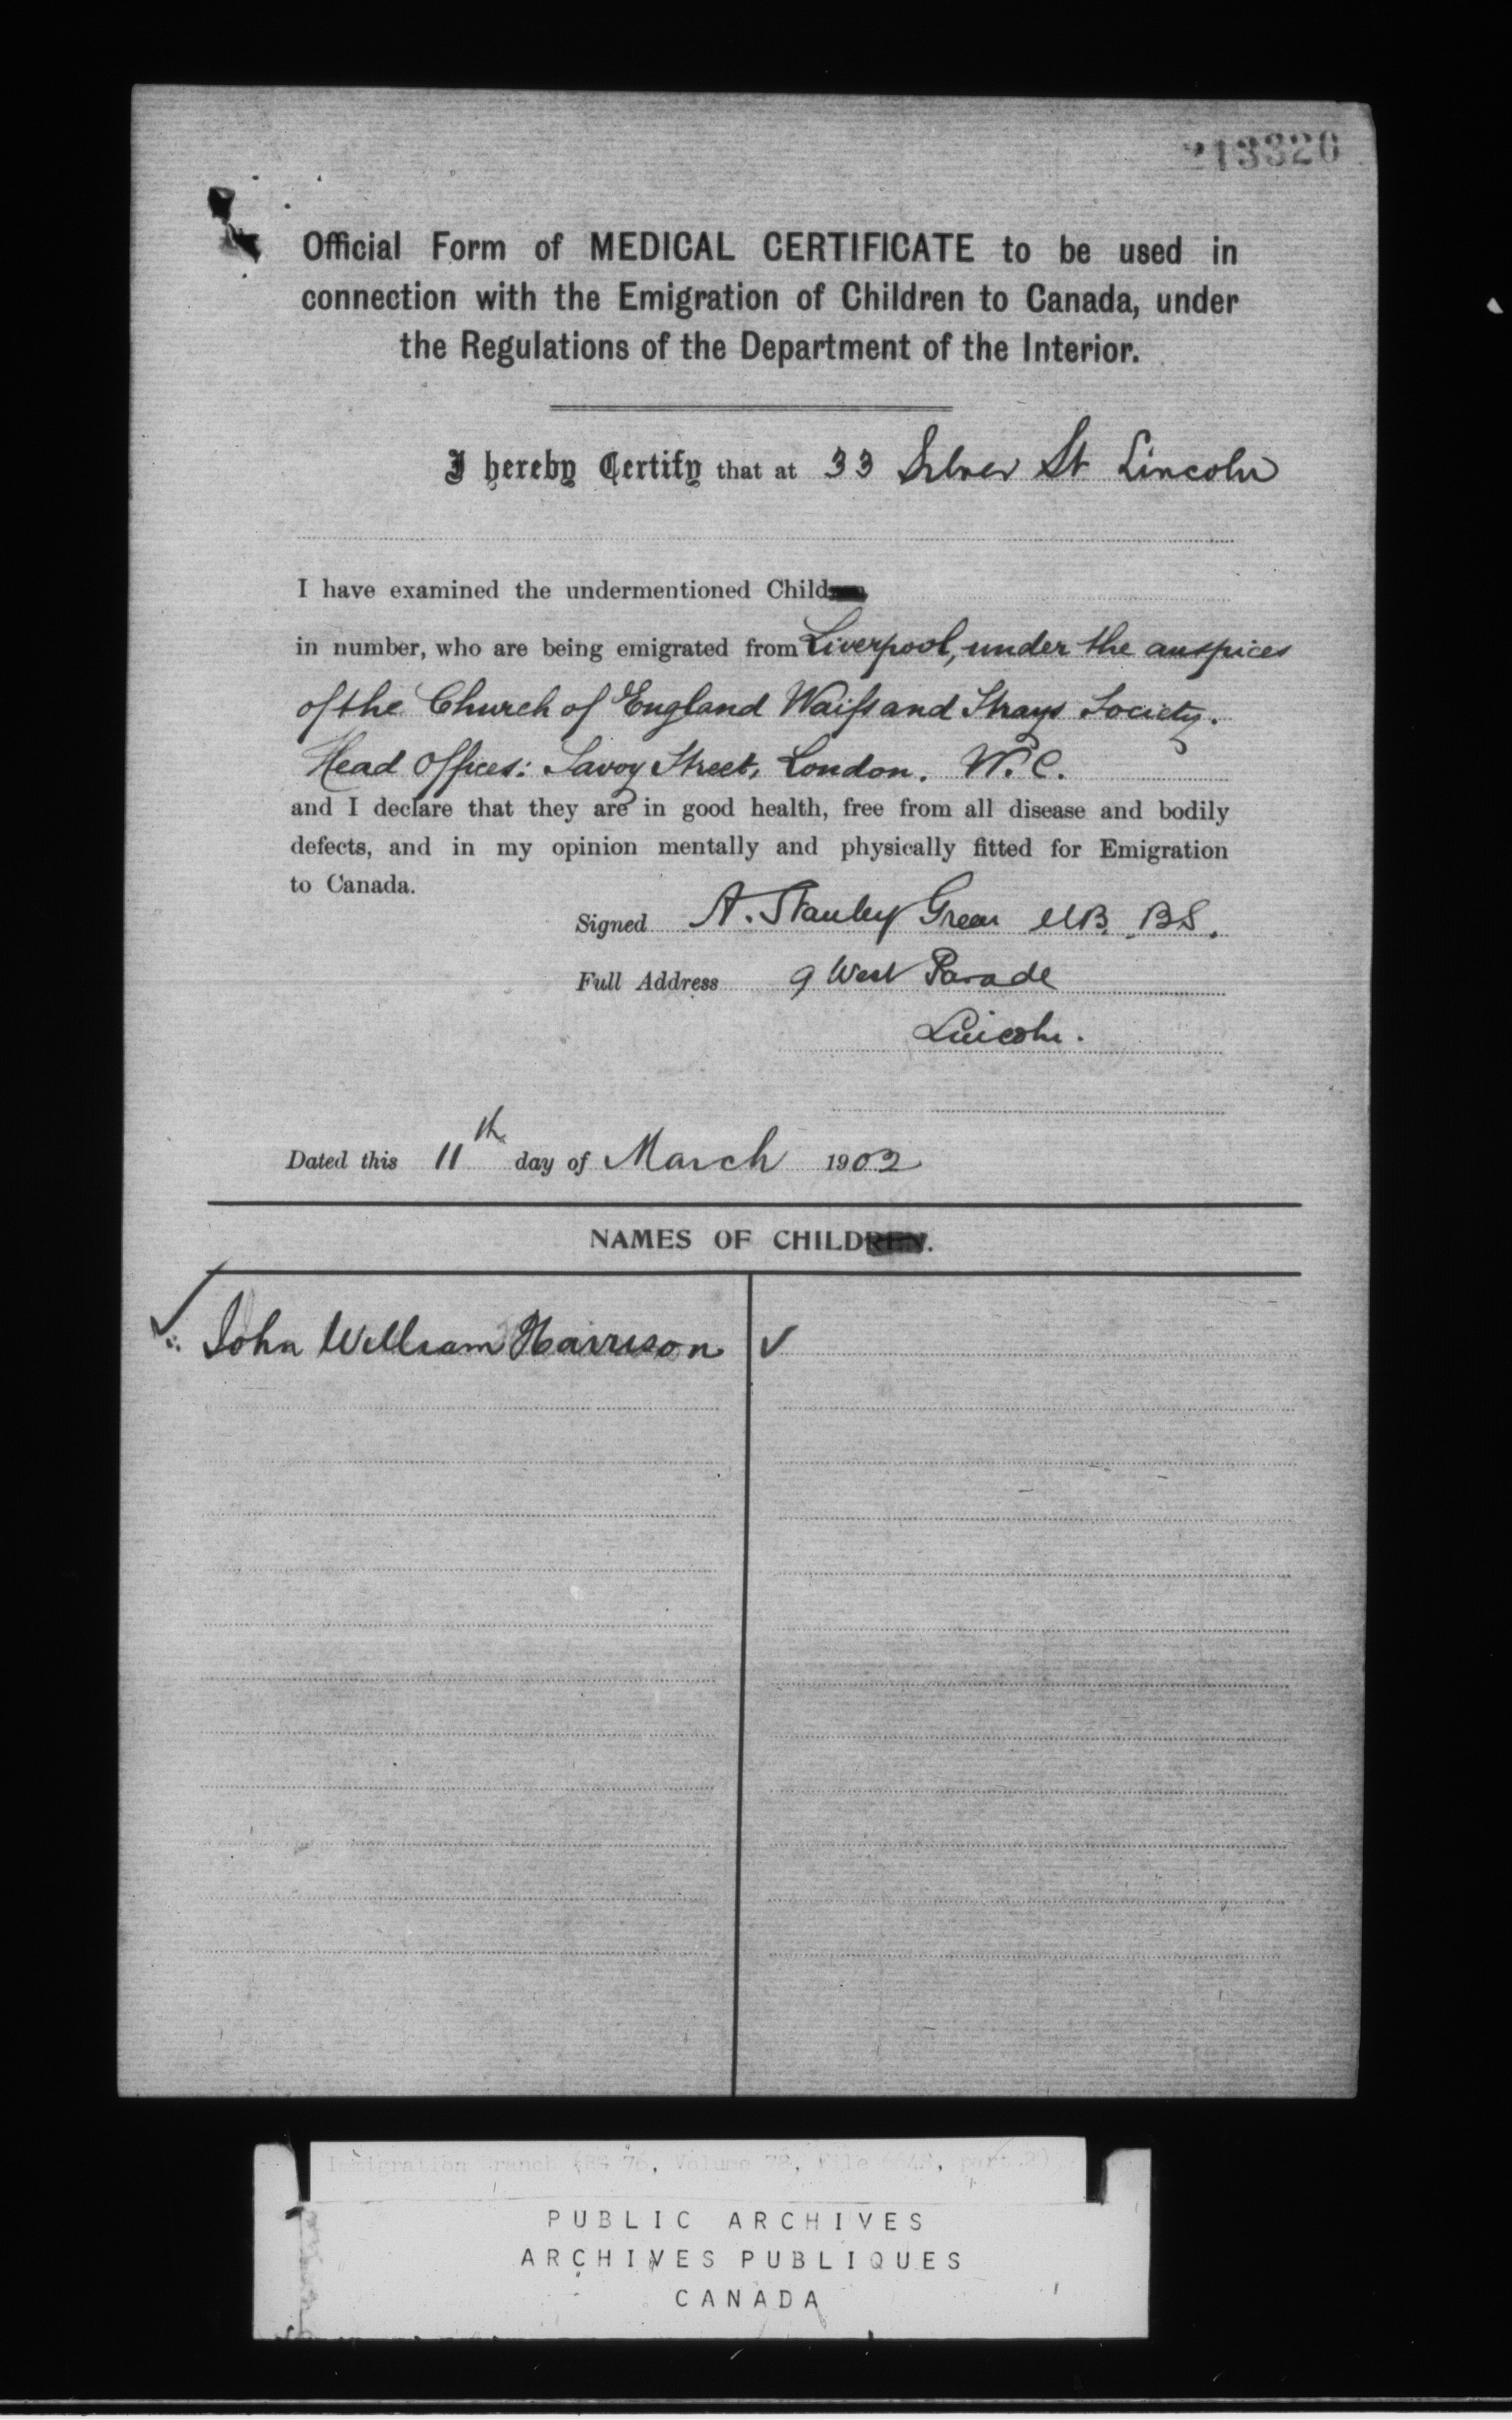 213320
Official Form of MEDICAL CERTIFICATE to be used in
connection with the Emigration of Children to Canada, under
the Regulations of the Department of the Interior.
I hereby Certify that at 33 Silver St Lincoln
I have examined the undermentioned Child
in number, who are being emigrated from Liverpool, under the auspices
of the Church of England Waifs and Strays Society.
Head Offices: Savoy Street, London. W.C.
and I declare that they are in good health, free from all disease and bodily
defects, and in my opinion mentally and physically fitted for Emigration
to Canada.
Signed A. Stanley Green M.B. B.S.
Full Address 9 West Parade
Lincoln.
Dated this 11th day of March 1902
NAMES OF CHILDREN.
John William Harrison
Immigration Branch (RG 76, Volume 78, File part 2)
PUBLIC ARCHIVES
ARCHIVES PUBLIQUES
CANADA